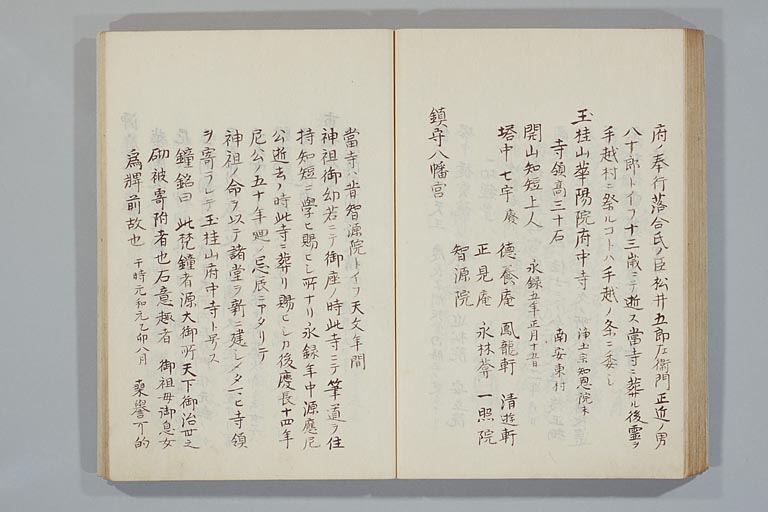 府ノ奉行落合氏ノ臣松井五郎左衛門正近ノ男
八十郎トイフ十三歳ニテ逝ス當寺ニ葬サル後霊ヲ
手越村ニ祭ルコトハ手越ノ条ニ委シ
玉桂山華陽院府中寺 浄土宗知恩院末
寺領高三十石 南安東村
開山知短上人 永録五年正月十五日
塔中七宇 慶 德養庵 鳳龍軒 清遊軒
正見庵 永林菴 一照院
智源院
鎮守八幡宮
當寺ハ昔智源院トイフ天文年間
神祖御幼若ニテ御座ノ時此寺ニテ筆ノ道ヲ住
持知短ニ學ヒ賜ヒシ所ナリ永録年中源應尼
公逝去ノ時此寺ニ葬リ賜ヒシカ後慶長十四年
尼公ノ五十年廻ノ忌辰ニアタリテ
神祖ノ命ヲ以テ諸堂ヲ新ニ建シメタマヒ寺領
ヲ寄ラレテ玉桂山府中寺ト号ス
鐘銘曰 此梵鐘者源大御所天下御治世之
砌被寄附者也石意趣者 御祖母御息女
為牌前故也 干時元和元乙卯八月 㐮譽可的